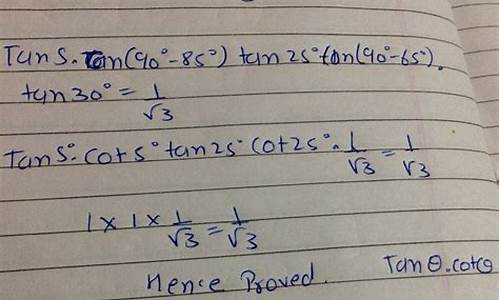 Tan 5. Tan(90°-85°) tan 25° tan(90°-65°).
tan 30° = 1/√3
Tan 5°. Cot 5° tan 25° Cot 25°. 1/√3 = 1/√3
1 x 1 x 1/√3 = 1/√3
Hence Proved. Tan θ. cot θ